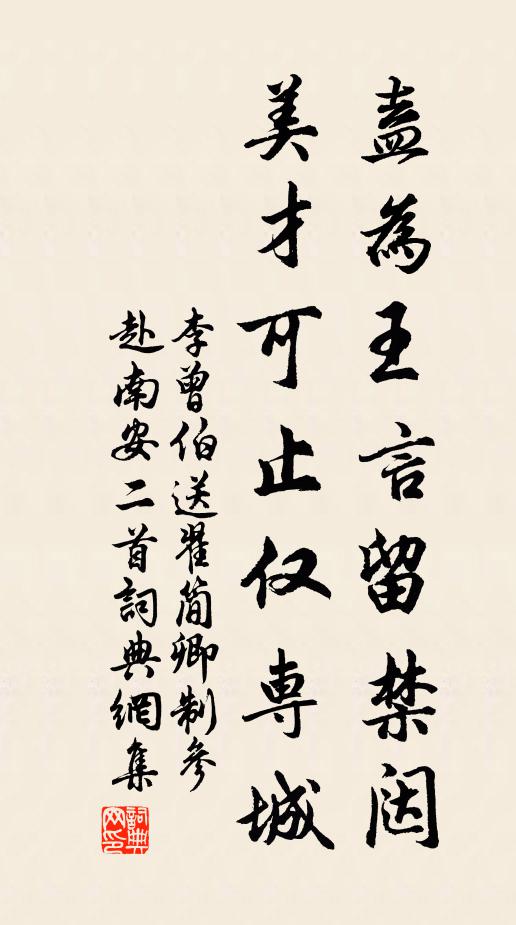 盍為王言留禁闼
美才可止仅専城
李曾伯送翟簡卿制參
赴南安二首詞典網集
詞典
网印